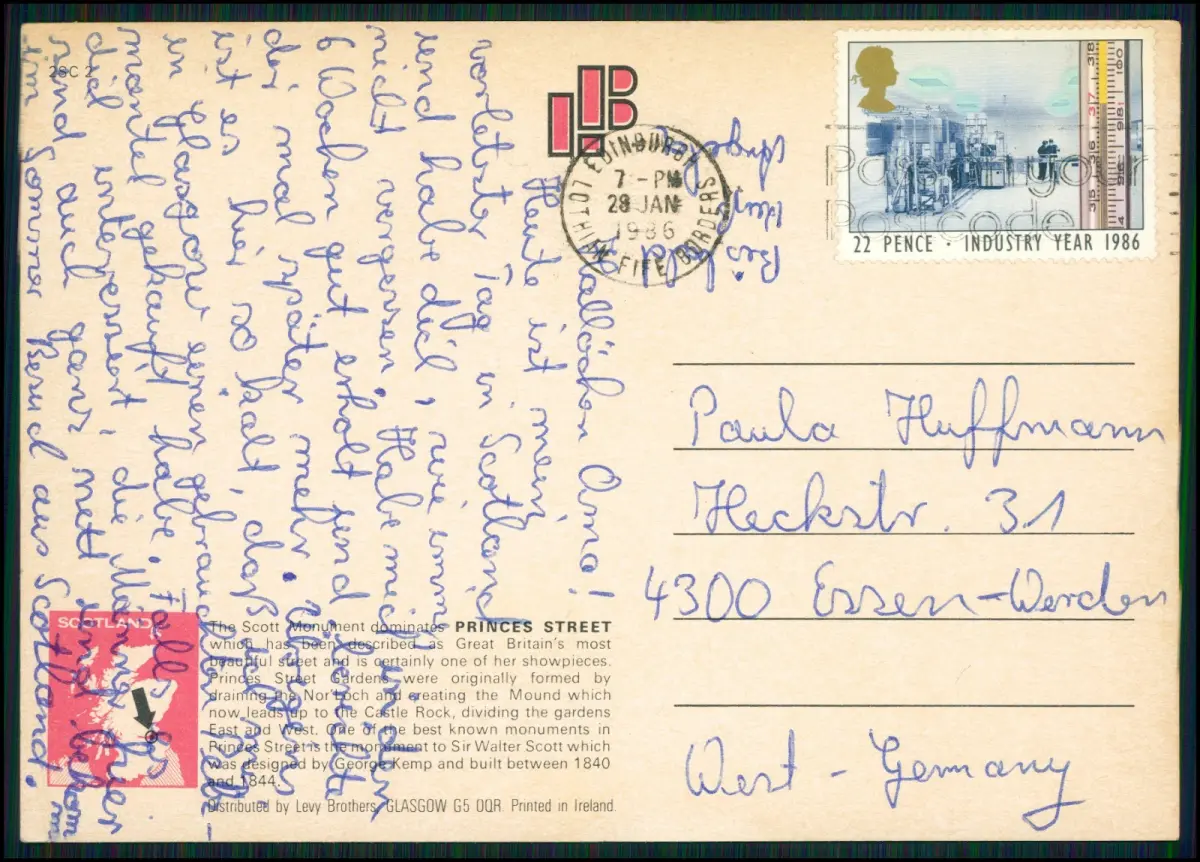 28C 2
Hallöchen Oma!
Heute ist mein
vorletzter Tag in Scotland
und habe dich, wie immer
nicht vergessen. Habe mich in den
6 Wochen gut erholt und
mal später mehr. Übrigens
ist es hier so kalt, daß ich mir
in Glasgow einen gebrauchten Pelz-
mantel gekauft habe. Falls es
dich interessiert, die Männer hier
sind auch ganz nett und
im Sommer Besuch aus Scotland.
Bis bald
SCOTLAND
The Scott Monument dominates PRINCES STREET
which has been described as Great Britain's most
beautiful street and is certainly one of her showpieces.
Princes Street Gardens were originally formed by
draining the Nor'Loch and creating the Mound which
now leads up to the Castle Rock, dividing the gardens
East and West. One of the best known monuments in
Princes Street is the monument to Sir Walter Scott which
was designed by George Kemp and built between 1840
and 1844.
Distributed by Levy Brothers, GLASGOW G5 0QR. Printed in Ireland.
EDINBURGH
7 - PM
28 JAN
1986
LOTHIAN FIFE BORDERS
Pass on your
Postcode
22 PENCE · INDUSTRY YEAR 1986
Paula Huffmann
Heckstr. 31
4300 Essen-Werden
West - Germany